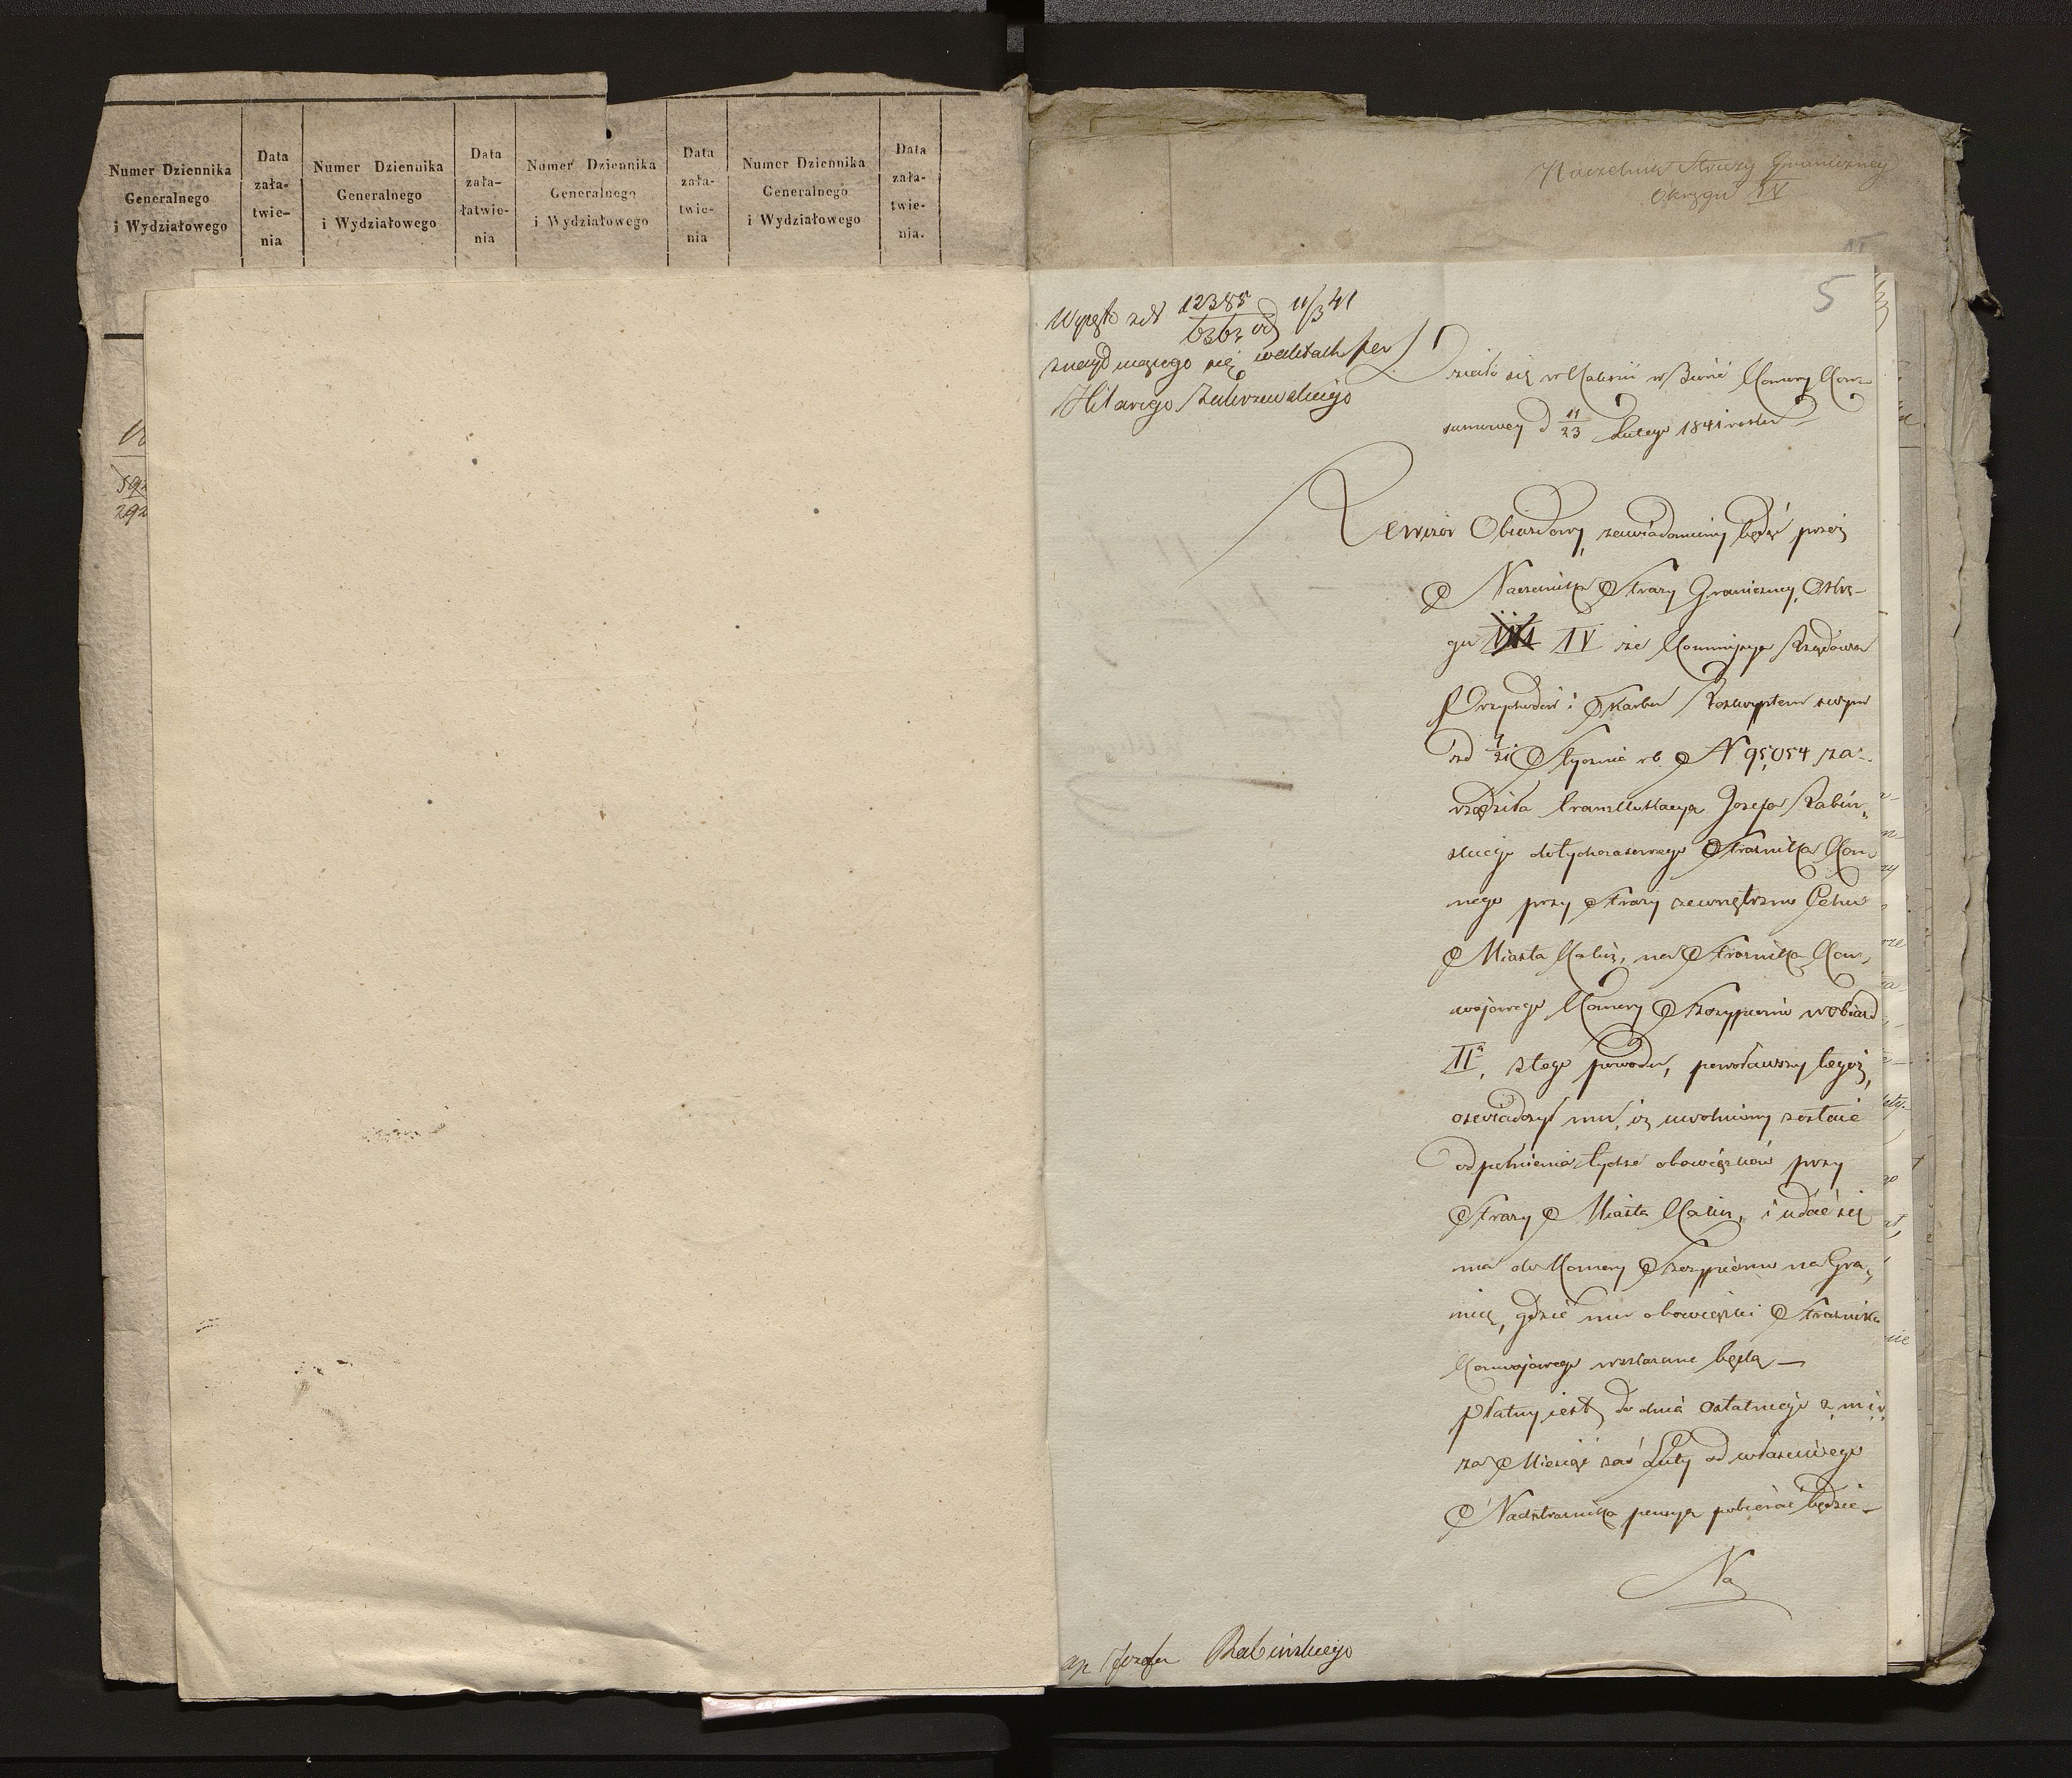 Numer Dziennika
Generalnego
i Wydziałowego
Data
zała-
twie-
nia
Numer Dziennika
Generalnego
i Wydziałowego
Data
zała-
łatwie-
nia
Numer Dziennika
Generalnego
i Wydziałowego
Data
zała-
twie-
nia
Numer Dziennika
Generalnego
i Wydziałowego
Data
zała-
twie-
nia.
Naczelnik Straży Graniczney
Okręgu IV
5
12385 11/3 41
znayduiącego się w aktach per
Hilarego Zakrzewskiego
Działo się w Kaliszu w Biórze Komory Kon-
sumowey d 11/23 Lutego 1841 roku
Rewizor Obiazdowy, zawiadomiony będąc przez
Naczelnika Straży Graniczney Okrę-
gu IV że Kommissya Rządowa
Przychodów i Skarbu Reskryptem swym
od 9/21 Stycznia rb N 95,054 za-
rządziła translokacyą Jozefa Rabiń-
skiego dotychczasowego Strażnika Kon-
nego przy Straży zewnętrzno Celne
Miasta Kalisz, na Strażnika Kon-
wojowego Komory Szczypiorno w obiazd
II, z tego powodu, powoławszy tegoż,
oświadczył mu, iż uwolniony zostaie
od pełnienia tychże obowiązków przy
Straży Miasta Kalisz, i udać się
ma do Komory Szczypiorno na Gra-
nicę, gdzie mu obowiązki Strażnika
Konwojowego wskazane będą —
Płatny iest do dnia ostatniego z. m. i r.
za Miesiąc zaś Luty od właściwego
Nadstrażnika pensyą pobierać będzie —
Na
ap Jozefa Rabińskiego